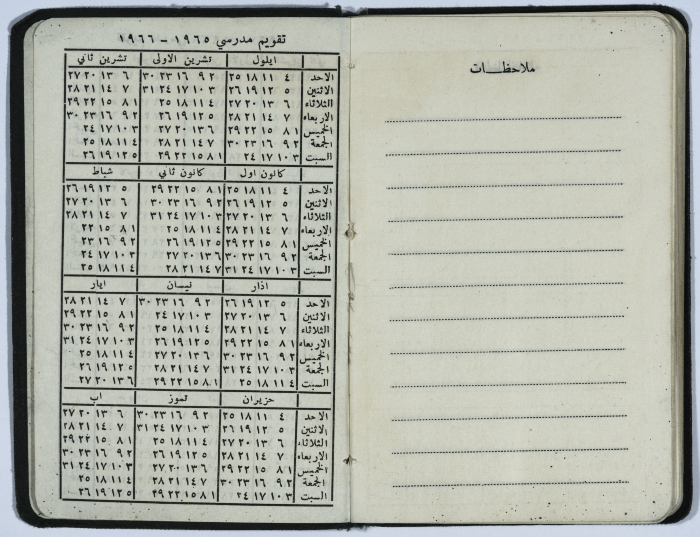 ملاحظات
تقويم مدرسي ١٩٦٥ – ١٩٦٦
ايلول تشرين الاولى تشرين ثاني
الاحد ٤ ١١ ١٨ ٢٥ ٢ ٩ ١٦ ٢٣ ٣٠ ٦ ١٣ ٢٠ ٢٧
الاثنين ٥ ١٢ ١٩ ٢٦ ٣ ١٠ ١٧ ٢٤ ٣١ ٧ ١٤ ٢١ ٢٨
الثلاثاء ٦ ١٣ ٢٠ ٢٧ ٤ ١١ ١٨ ٢٥ ١ ٨ ١٥ ٢٢ ٢٩
الاربعاء ٧ ١٤ ٢١ ٢٨ ٥ ١٢ ١٩ ٢٦ ٢ ٩ ١٦ ٢٣ ٣٠
الخميس ١ ٨ ١٥ ٢٢ ٢٩ ٦ ١٣ ٢٠ ٢٧ ٣ ١٠ ١٧ ٢٤
الجمعة ٢ ٩ ١٦ ٢٣ ٣٠ ٧ ١٤ ٢١ ٢٨ ٤ ١١ ١٨ ٢٥
السبت ٣ ١٠ ١٧ ٢٤ ١ ٨ ١٥ ٢٢ ٢٩ ٥ ١٢ ١٩ ٢٦
كانون اول كانون ثاني شباط
الاحد ٤ ١١ ١٨ ٢٥ ١ ٨ ١٥ ٢٢ ٢٩ ٥ ١٢ ١٩ ٢٦
الاثنين ٥ ١٢ ١٩ ٢٦ ٢ ٩ ١٦ ٢٣ ٣٠ ٦ ١٣ ٢٠ ٢٧
الثلاثاء ٦ ١٣ ٢٠ ٢٧ ٣ ١٠ ١٧ ٢٤ ٣١ ٧ ١٤ ٢١ ٢٨
الاربعاء ٧ ١٤ ٢١ ٢٨ ٤ ١١ ١٨ ٢٥ ١ ٨ ١٥ ٢٢
الخميس ١ ٨ ١٥ ٢٢ ٢٩ ٥ ١٢ ١٩ ٢٦ ٢ ٩ ١٦ ٢٣
الجمعة ٢ ٩ ١٦ ٢٣ ٣٠ ٦ ١٣ ٢٠ ٢٧ ٣ ١٠ ١٧ ٢٤
السبت ٣ ١٠ ١٧ ٢٤ ٣١ ٧ ١٤ ٢١ ٢٨ ٤ ١١ ١٨ ٢٥
اذار نيسان ايار
الاحد ٥ ١٢ ١٩ ٢٦ ٢ ٩ ١٦ ٢٣ ٣٠ ٧ ١٤ ٢١ ٢٨
الاثنين ٦ ١٣ ٢٠ ٢٧ ٣ ١٠ ١٧ ٢٤ ١ ٨ ١٥ ٢٢ ٢٩
الثلاثاء ٧ ١٤ ٢١ ٢٨ ٤ ١١ ١٨ ٢٥ ٢ ٩ ١٦ ٢٣ ٣٠
الاربعاء ١ ٨ ١٥ ٢٢ ٢٩ ٥ ١٢ ١٩ ٢٦ ٣ ١٠ ١٧ ٢٤ ٣١
الخميس ٢ ٩ ١٦ ٢٣ ٣٠ ٦ ١٣ ٢٠ ٢٧ ٤ ١١ ١٨ ٢٥
الجمعة ٣ ١٠ ١٧ ٢٤ ٣١ ٧ ١٤ ٢١ ٢٨ ٥ ١٢ ١٩ ٢٦
السبت ٤ ١١ ١٨ ٢٥ ١ ٨ ١٥ ٢٢ ٢٩ ٦ ١٣ ٢٠ ٢٧
حزيران تموز اب
الاحد ٤ ١١ ١٨ ٢٥ ٢ ٩ ١٦ ٢٣ ٣٠ ٦ ١٣ ٢٠ ٢٧
الاثنين ٥ ١٢ ١٩ ٢٦ ٣ ١٠ ١٧ ٢٤ ٣١ ٧ ١٤ ٢١ ٢٨
الثلاثاء ٦ ١٣ ٢٠ ٢٧ ٤ ١١ ١٨ ٢٥ ١ ٨ ١٥ ٢٢ ٢٩
الاربعاء ٧ ١٤ ٢١ ٢٨ ٥ ١٢ ١٩ ٢٦ ٢ ٩ ١٦ ٢٣ ٣٠
الخميس ١ ٨ ١٥ ٢٢ ٢٩ ٦ ١٣ ٢٠ ٢٧ ٣ ١٠ ١٧ ٢٤ ٣١
الجمعة ٢ ٩ ١٦ ٢٣ ٣٠ ٧ ١٤ ٢١ ٢٨ ٤ ١١ ١٨ ٢٥
السبت ٣ ١٠ ١٧ ٢٤ ١ ٨ ١٥ ٢٢ ٢٩ ٥ ١٢ ١٩ ٢٦